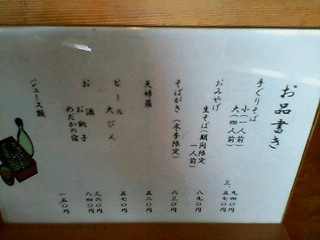 お品書き
手ぐりそば
小(一人前) 九四〇円
大(四人前) 三、五七〇円
おみやげ
生そば(期間限定 一人前) 八九〇円
そばがき(冬季限定) 六三〇円
天婦羅 五二〇円
ビール 大びん 五七〇円
お酒 お銚子 三六〇円
めだかの宿 八四〇円
ジュース類 一五〇円